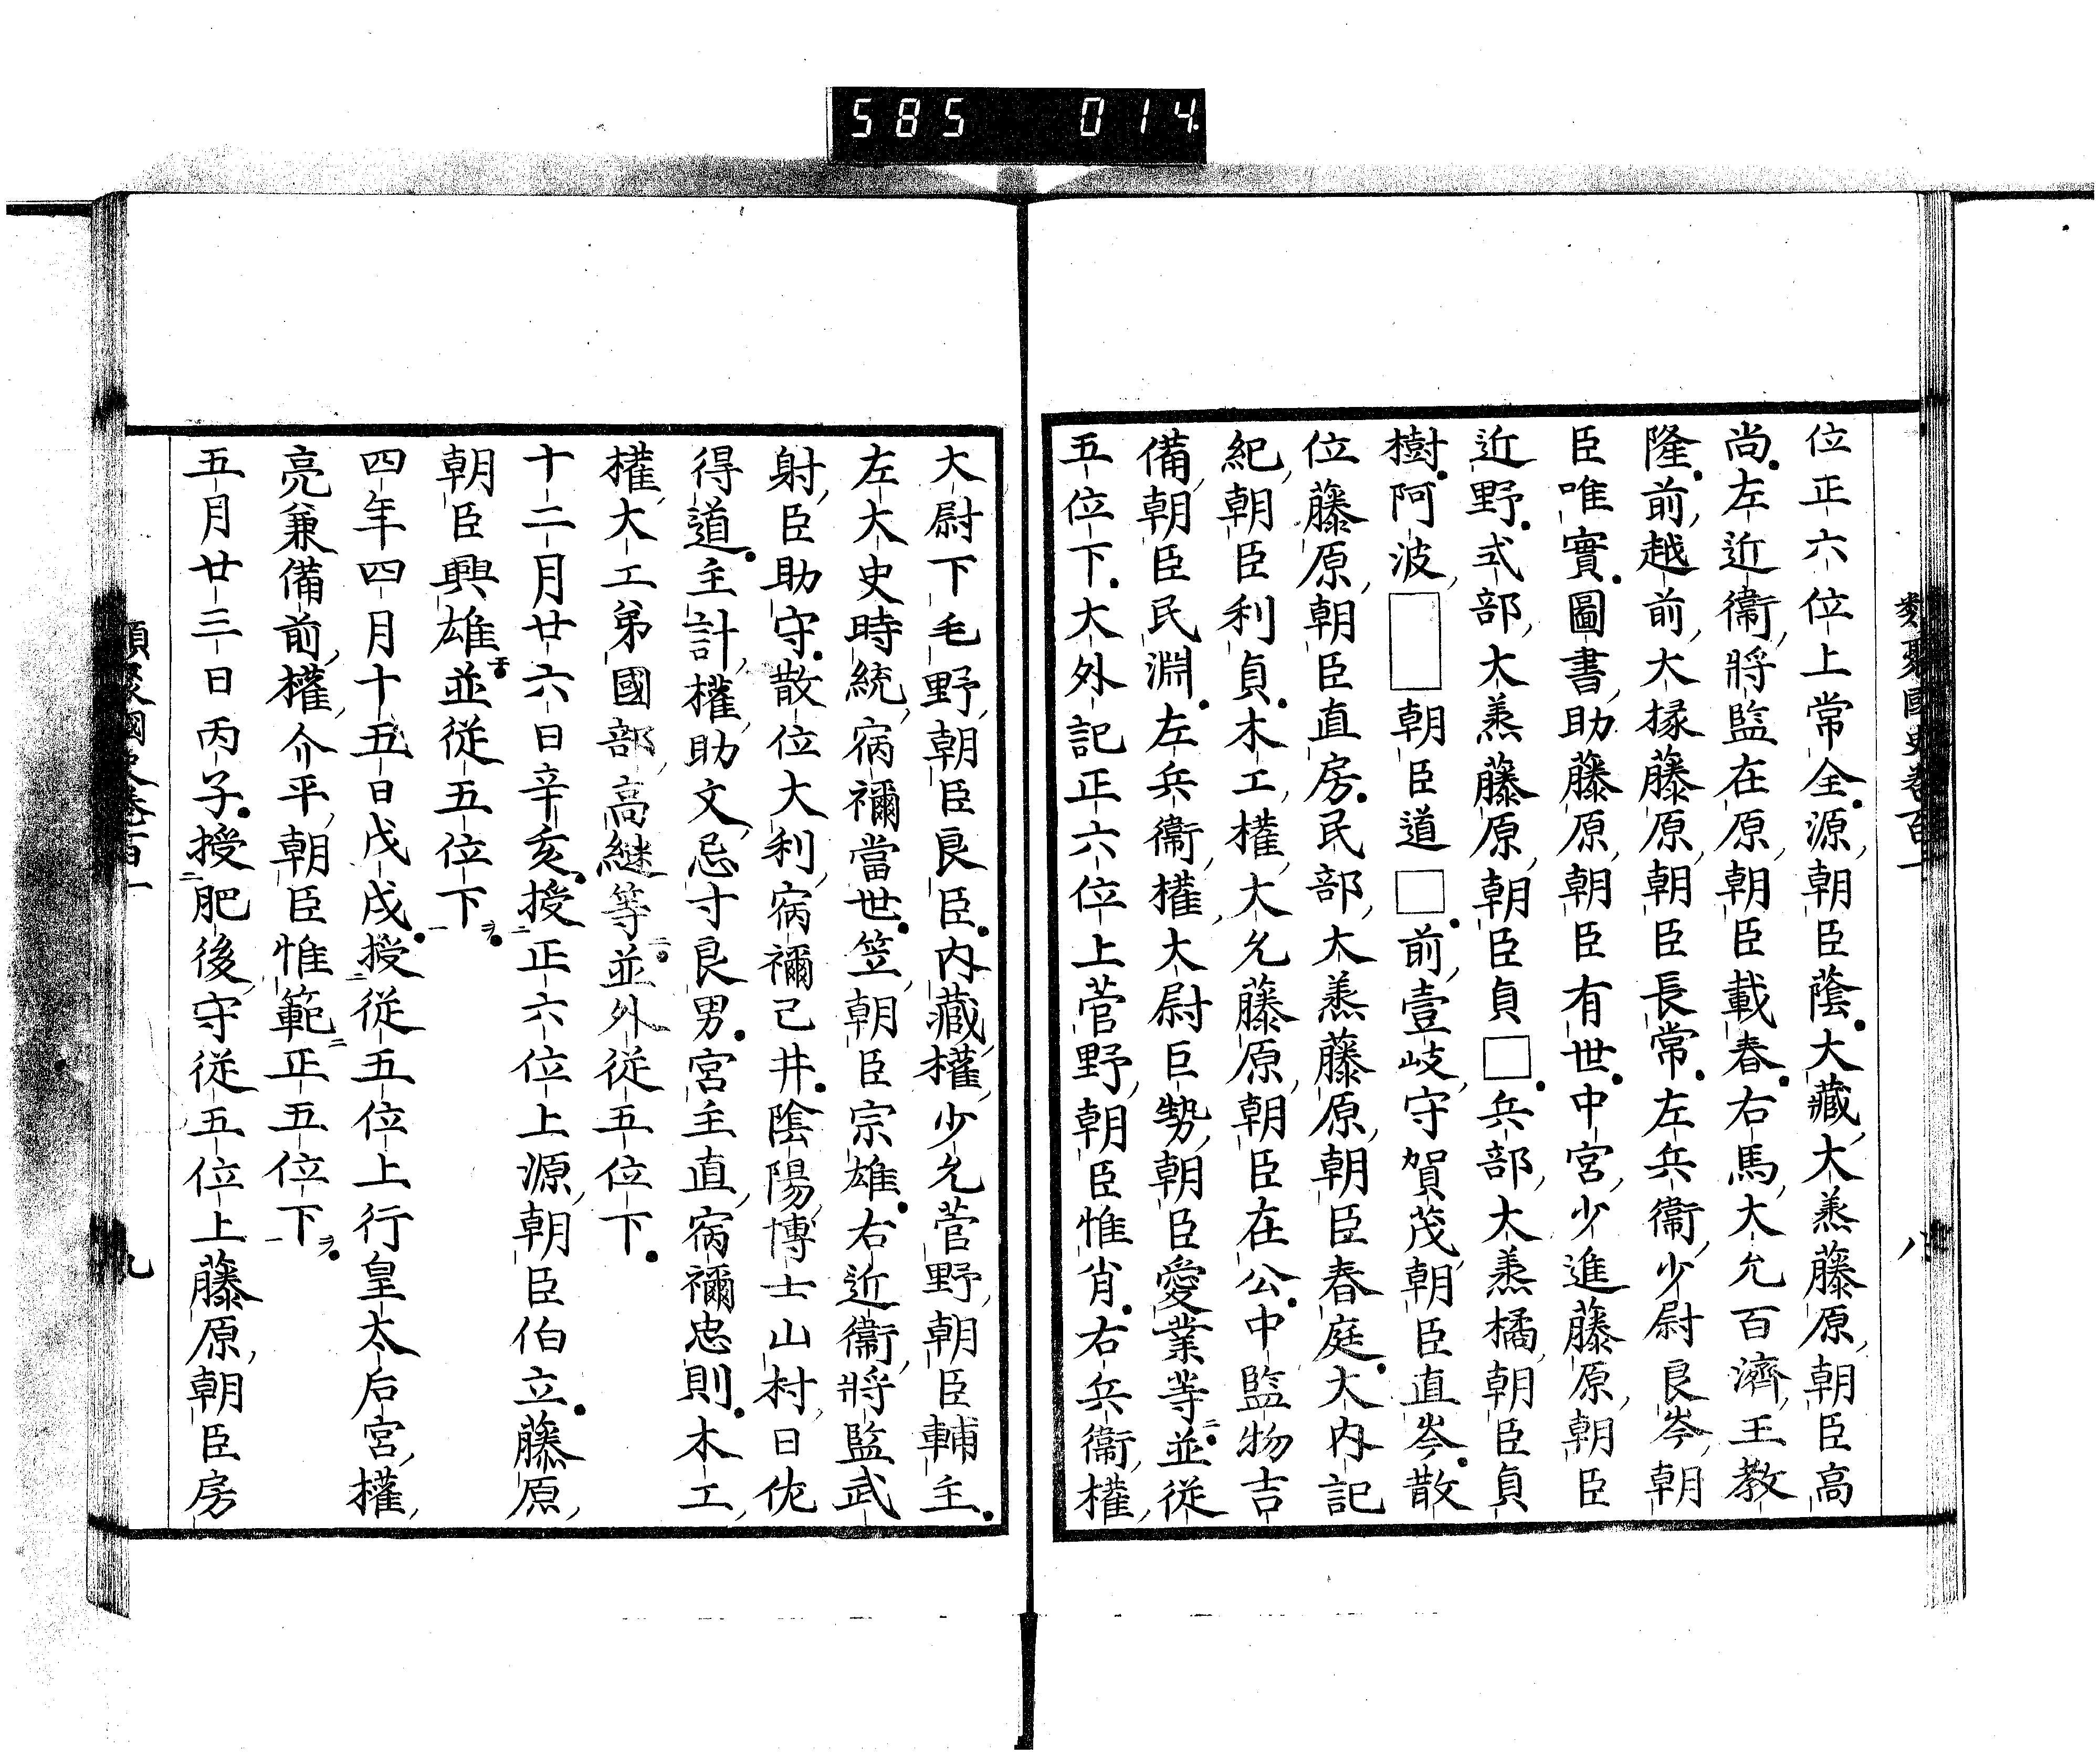 585 014
類聚國史卷百一 八
位正六位上常全源朝臣蔭大藏大烝藤原朝臣高
尚左近衞將監在原朝臣載春右馬大允百濟王教
隆前越前大掾藤原朝臣長常左兵衞少尉良岑朝
臣唯實圖書助藤原朝臣有世中宮少進藤原朝臣
近野式部大烝藤原朝臣貞□兵部大烝橘朝臣貞
樹阿波□朝臣道□前壹岐守賀茂朝臣直岑散
位藤原朝臣直房民部大烝藤原朝臣春庭大内記
紀朝臣利貞木工權大允藤原朝臣在公中監物吉
備朝臣民淵左兵衞權大尉巨勢朝臣愛業等並從
五位下大外記正六位上菅野朝臣惟肖右兵衞權
大尉下毛野朝臣良臣内藏權少允菅野朝臣輔主
左大史時統宿禰當世笠朝臣宗雄右近衞將監武
射臣助守散位大利宿禰己井陰陽博士山村日佐
得道主計權助文忌寸良男宮主直宿禰忠則木工
權大工弟國部高継等並外從五位下
十二月廿六日辛亥授正六位上源朝臣伯立藤原
朝臣興雄並從五位下
四年四月十五日戊戌授從五位上行皇太后宮權
亮兼備前權介平朝臣惟範正五位下
五月廿三日丙子授肥後守從五位上藤原朝臣房
類聚國史卷百一 九